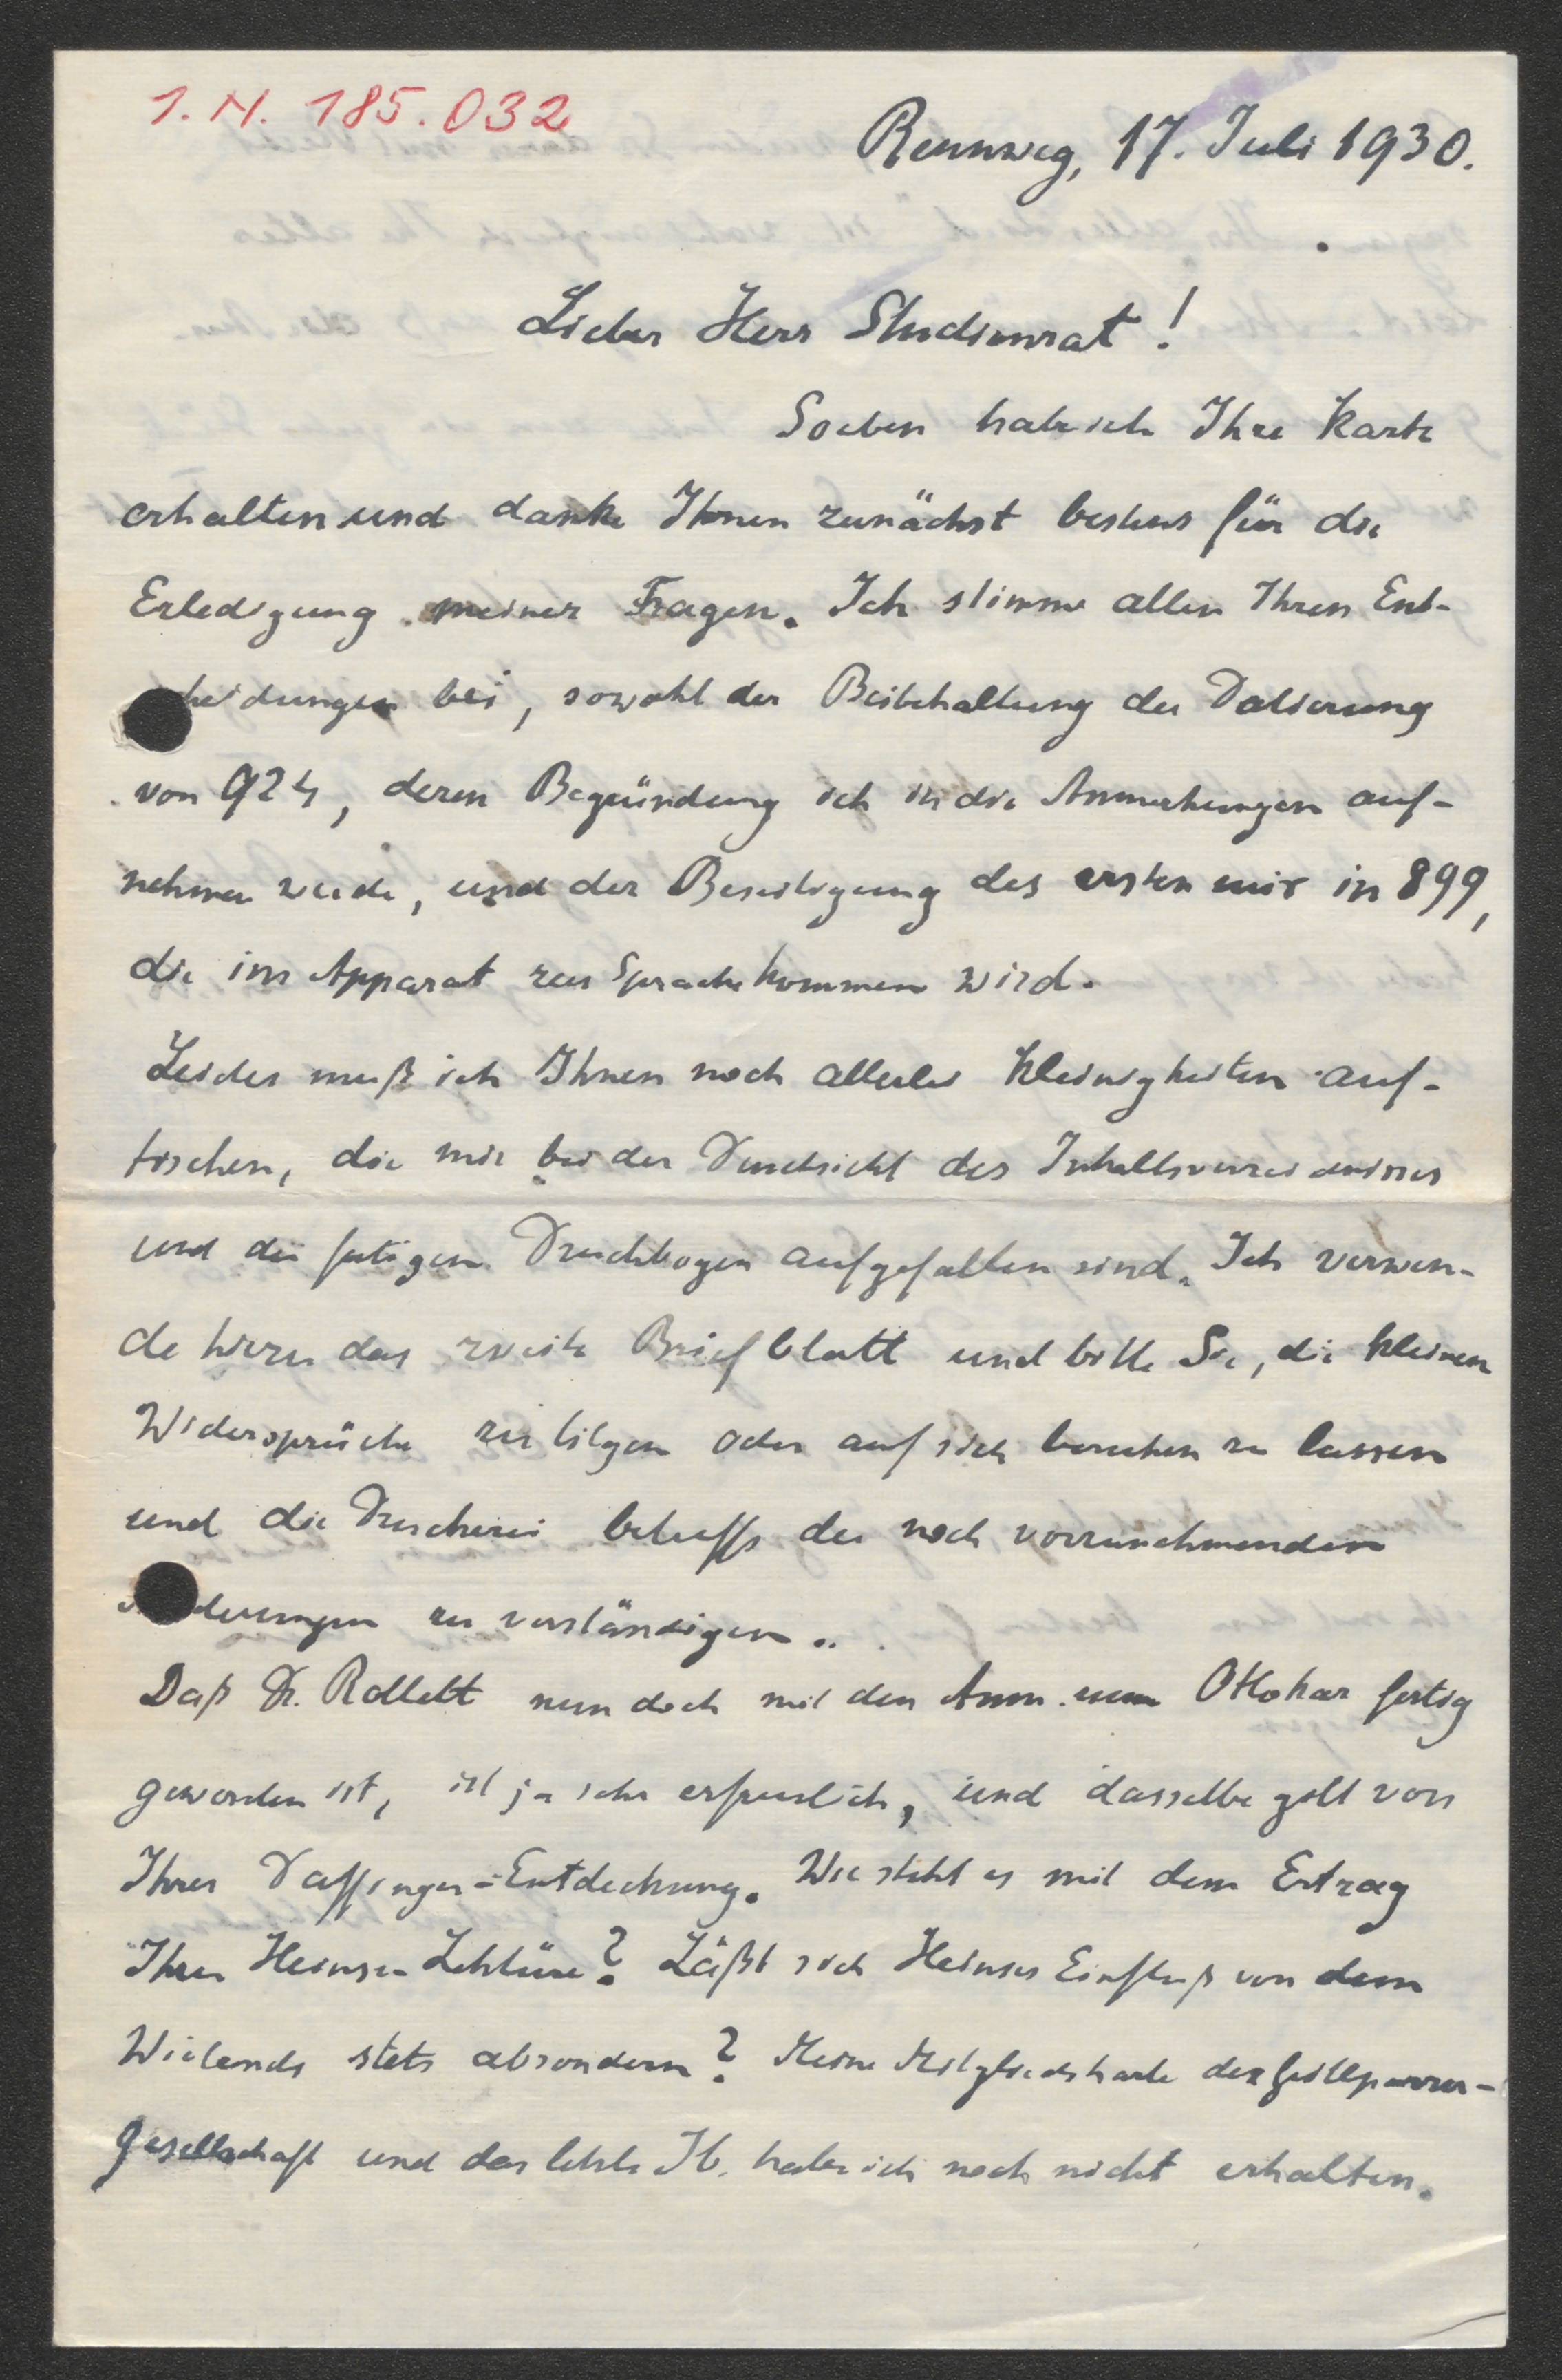 I. N. 185.032
Rennweg, 17. Juli 1930.
Lieber Herr Studienrat!
Soeben habe ich Ihre Karte
erhalten und danke Ihnen zunächst bestens für die
Erledigung meiner Fragen. Ich stimme allen Ihren Ent-
heidungen bei, sowohl der Beibehaltung der Datierung
von 924, deren Begründung ich in die Anmerkungen auf-
nehmen werde, und der Beseitigung des ersten mir in 899,
die im Apparat zur Sprache kommen wird.
Leider muß ich Ihnen noch allerlei Kleinigkeiten auf-
tischen, die mir bei der Durchsicht des Inhaltsverzeichnisses
und der fertigen Druckbogen aufgefallen sind. Ich verwen-
de hiezu das zweite Briefblatt und bitte Sie, die kleinen
Widersprüche zu tilgen oder auf sich beruhen zu lassen
und die Druckerei behufs der noch vorzunehmenden
derungen zu verständigen.
Daß Dr. Rollett nun doch mit den Anm. zum Ottokar fertig
geworden ist, ist ja sehr erfreulich, und dasselbe gilt von
Ihrer Daffinger-Entdeckung. Wie steht es mit dem Ertrag
Ihrer Heinse-Lektüre? Läßt sich Heinses Einfluß von dem
Wielands stets absondern? Meine Mitgliedskarte der Grillparzer-
gesellschaft und das letzte Jb. habe ich noch nicht erhalten.